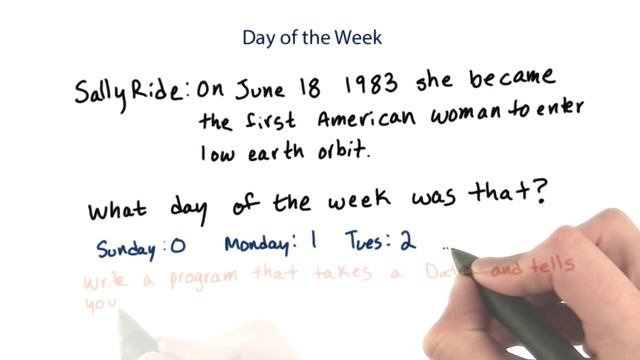 Day of the Week
Sally Ride: On June 18 1983 she became
the first American woman to enter
low earth orbit.
What day of the week was that?
Sunday: 0 Monday: 1 Tues: 2 ..
Write a program that takes a Date and tells
you